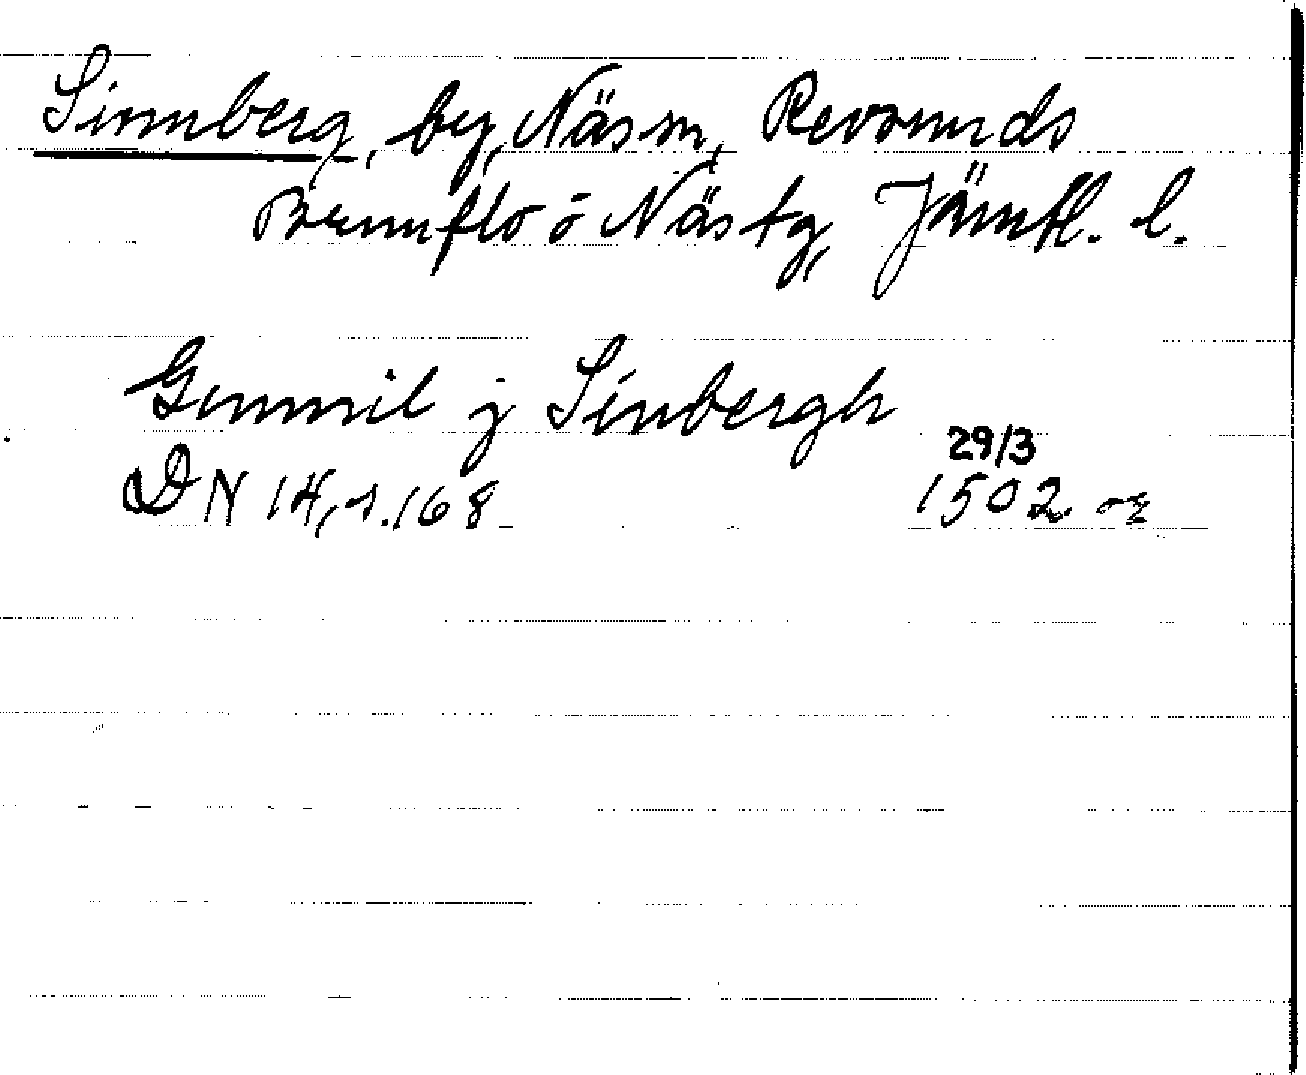 Sinnberg, by, Näs sn, Revsunds
Brunflo o Näs tg, Jämtl. l.
Gunnil j Sinbergh
29/3
DN 14, s. 168 1502 or